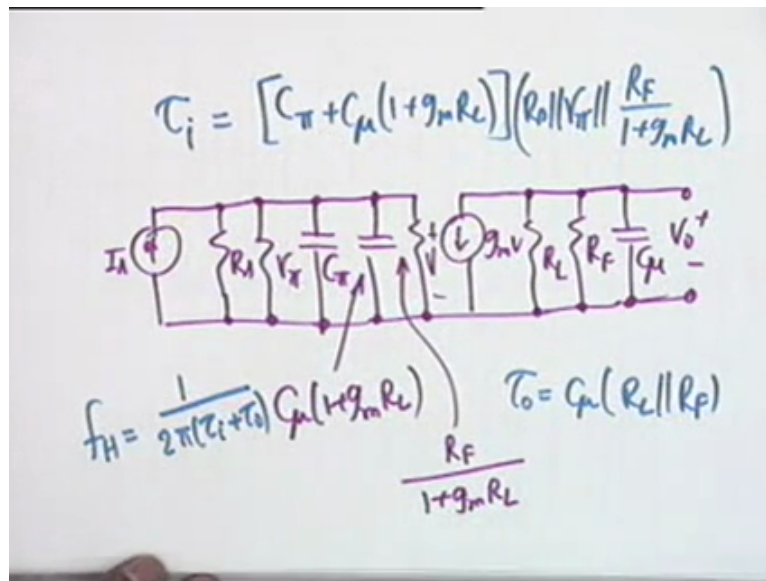 τi = [Cπ + Cμ(1+gmRL)](Rs||rπ|| RF/(1+gmRL))
Is Rs rπ Cπ + V - gmv RL RF Cμ V0 + -
fH = 1/(2π(τi+τ0)) Cμ(1+gmRL) τ0 = Cμ(RL||RF)
RF/(1+gmRL)